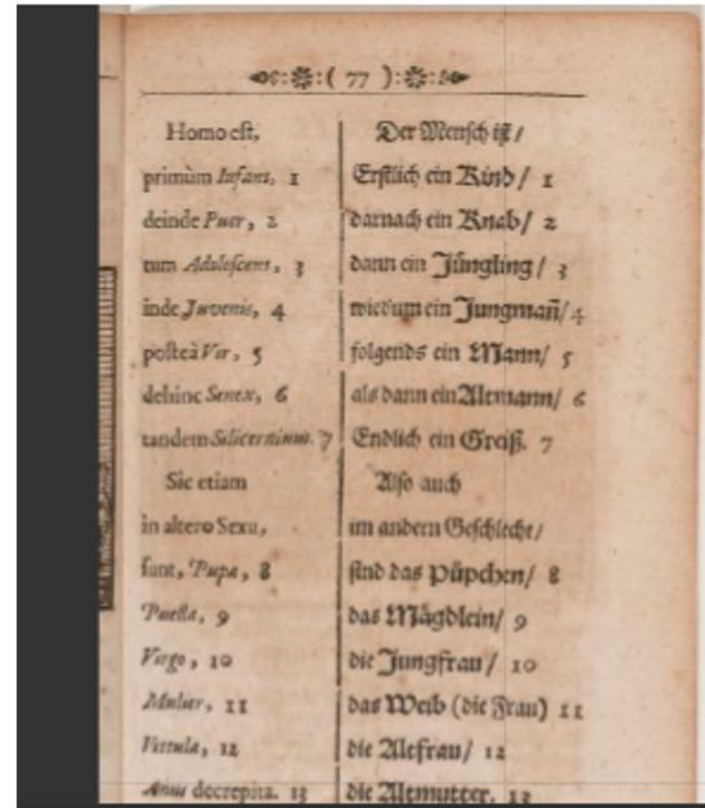 ( 77 )
Homo est,
primùm Infans, 1
deinde Puer, 2
tum Adolescens, 3
inde Juvenis, 4
posteà Vir, 5
dehinc Senex, 6
tandem Silicernium. 7
Sic etiam
in altero Sexu,
sunt, Pupa, 8
Puella, 9
Virgo, 10
Mulier, 11
Vetula, 12
Anus decrepita. 13
Der Mensch ist /
Erstlich ein Kind / 1
darnach ein Knab / 2
dann ein Jüngling / 3
wiedum ein Jungmañ / 4
folgends ein Mann / 5
als dann ein Altmann / 6
Endlich ein Greiß. 7
Also auch
im andern Geschlecht /
sind das Püpchen / 8
das Mägdlein / 9
die Jungfrau / 10
das Weib (die Frau) 11
die Altfrau / 12
die Altmutter. 13